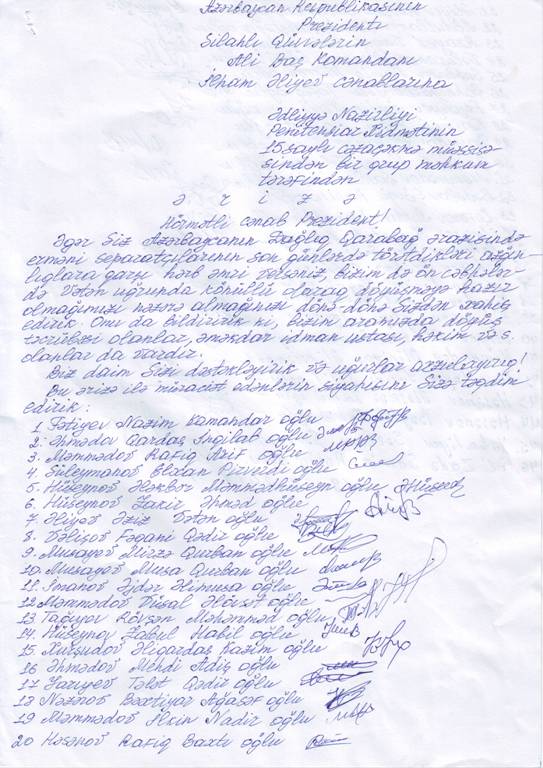 Azərbaycan Respublikasının
Prezidenti
Silahlı Qüvvələrin
Ali Baş Komandanı
İlham Əliyev cənablarına
Ədliyyə Nazirliyi
Penitensiar Xidmətinin
15 saylı cəzaçəkmə müəssisə
sindən bir qrup məhkum
tərəfindən
ə r i z ə
Hörmətli cənab Prezident!
Əgər Siz Azərbaycanın Dağlıq Qarabağ ərazisində
erməni separatçılarının son günlərdə törətdikləri azğın-
lıqlara qarşı hərb əmri versəniz, bizim də ön cəbhələr-
də Vətən uğrunda könüllü olaraq döyüşməyə hazır
olmağımızı nəzərə almağınızı dönə-dönə Sizdən xahiş
edirik. Onu da bildiririk ki, bizim aramızda döyüş
təcrübəsi olanlar, əməkdar idman ustası, həkim və s.
olanlar da vardır.
Biz daim Sizi dəstəkləyirik və uğurlar arzulayırıq!
Bu ərizə ilə müraciət edənlərin siyahısını Sizə təqdim
edirik:
1. Fətiyev Nazim Kamandar oğlu
2. Əhmədov Qardaş İnqilab oğlu
3. Məmmədov Rafiq Arif oğlu
4. Süleymanov Elxan Pirverdi oğlu
5. Hüseynov Ələkbər Məmmədhüseyn oğlu
6. Hüseynov Zakir Əhməd oğlu
7. Əliyev Əziz Vətən oğlu
8. Vəlişov Fəqani Qədir oğlu
9. Musayev Mirzə Qurban oğlu
10. Musayev Musa Qurban oğlu
11. İmanov Əjdər Əlimusa oğlu
12. Məmmədov Vüsal Hövsət oğlu
13. Tağıyev Rövşən Məhəmməd oğlu
14. Hüseynov Zabul Habil oğlu
15. Xurşudov Əliqardaş Kazim oğlu
16 Əhmədov Mehdi Adiş oğlu
17 Zarıyev Tələt Qədir oğlu
18 Nəzərov Bəxtiyar Ağaşəf oğlu
19 Məmmədov Elçin Nadir oğlu
20 Həsənov Rafiq Baxtı oğlu